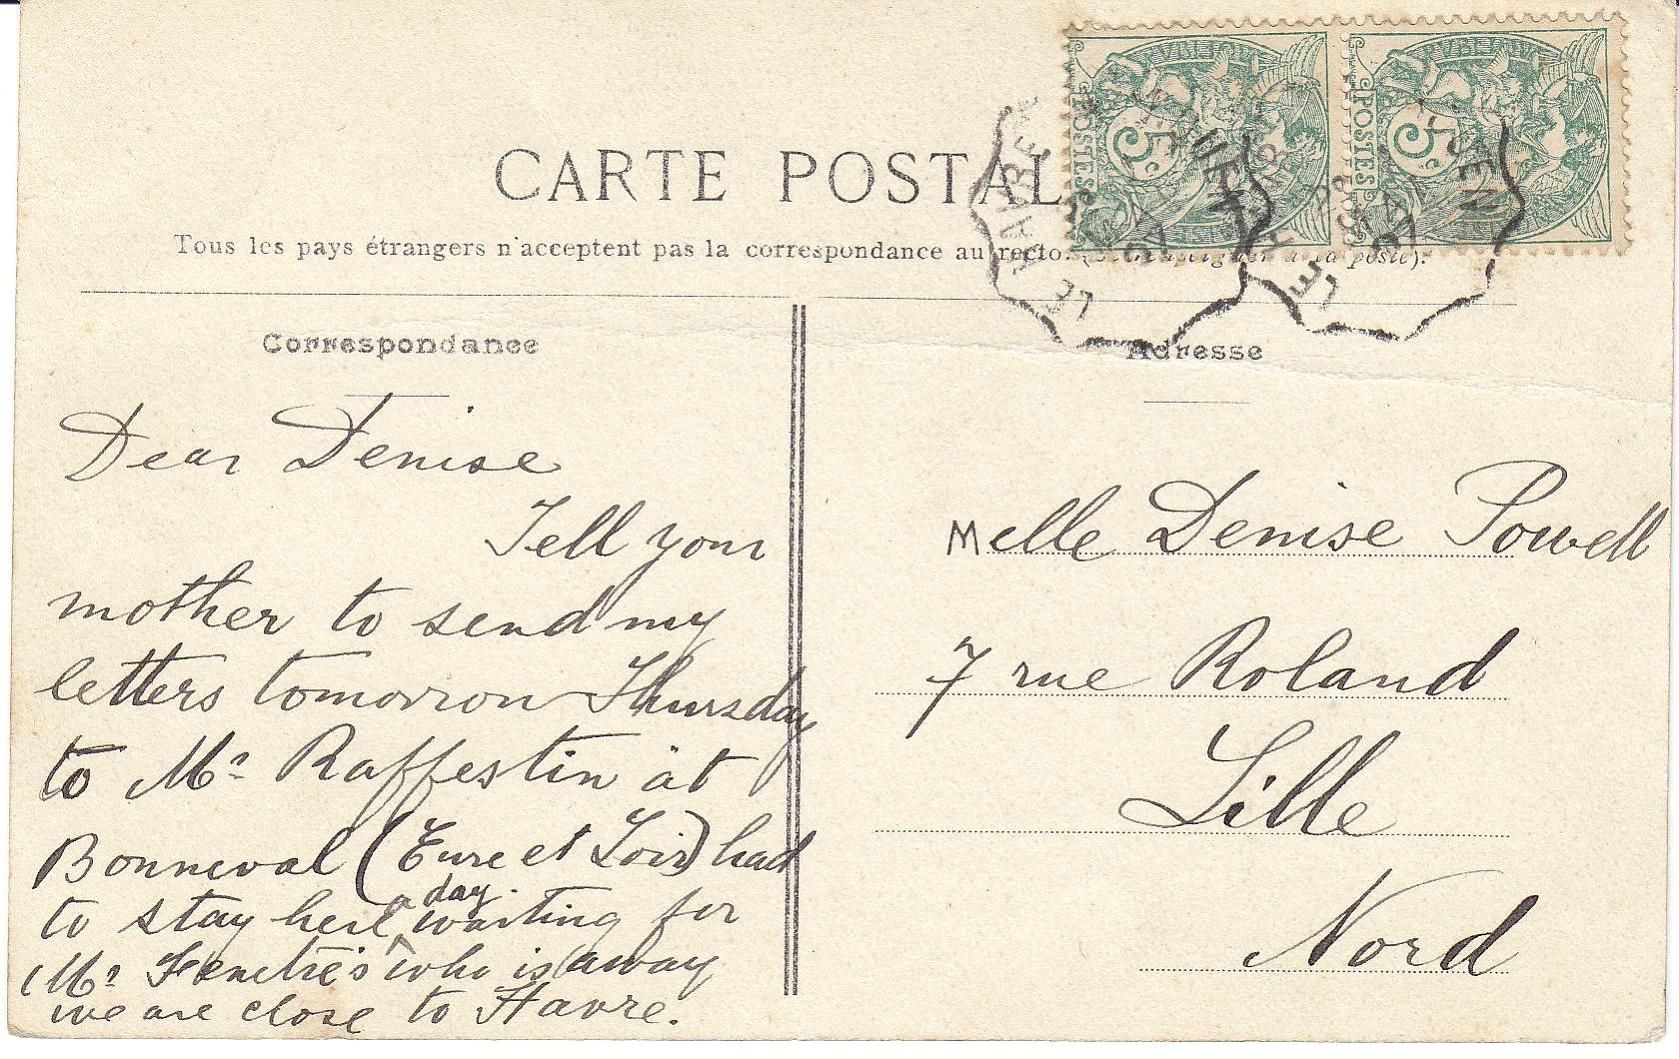 CARTE POSTAL
Tous les pays étrangers n'acceptent pas la correspondance au recto. (
à la poste).
POSTES
5c
POSTES
5c
LE HAVRE
LE
Correspondance
Dear Denise
Tell your
mother to send my
letters tomorrow Thursday
to Mr Raffestin at
Bonneval (Eure et Loir) had
to stay here a day waiting for
Mr who is away
we are close to Havre.
Adresse
Melle Denise Powell
7 rue Roland
Lille
Nord